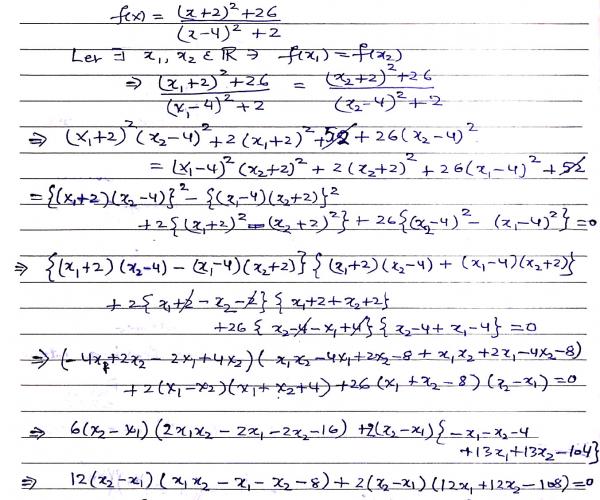 f(x) = ((x+2)²+26)/((x-4)²+2)
Let ∃ x₁, x₂ ∈ ℝ ∋ f(x₁) = f(x₂)
⇒ ((x₁+2)²+26)/((x₁-4)²+2) = ((x₂+2)²+26)/((x₂-4)²+2)
⇒ (x₁+2)²(x₂-4)²+2(x₁+2)²+52+26(x₂-4)²
= (x₁-4)²(x₂+2)²+2(x₂+2)²+26(x₁-4)²+52
= {(x₁+2)(x₂-4)}² - {(x₁-4)(x₂+2)}²
+2{(x₁+2)²-(x₂+2)²}+26{(x₂-4)²-(x₁-4)²}=0
⇒ {(x₁+2)(x₂-4)-(x₁-4)(x₂+2)}{(x₁+2)(x₂-4)+(x₁-4)(x₂+2)}
+2{x₁+2-x₂-2}{x₁+2+x₂+2}
+26{x₂-4-x₁+4}{x₂-4+x₁-4}=0
⇒ (-4x₁+2x₂-2x₁+4x₂)(x₁x₂-4x₁+2x₂-8+x₁x₂+2x₁-4x₂-8)
+2(x₁-x₂)(x₁+x₂+4)+26(x₁+x₂-8)(x₂-x₁)=0
⇒ 6(x₂-x₁)(2x₁x₂-2x₁-2x₂-16)+2(x₂-x₁){-x₁-x₂-4
+13x₁+13x₂-104}
⇒ 12(x₂-x₁)(x₁x₂-x₁-x₂-8)+2(x₂-x₁)(12x₁+12x₂-108)=0